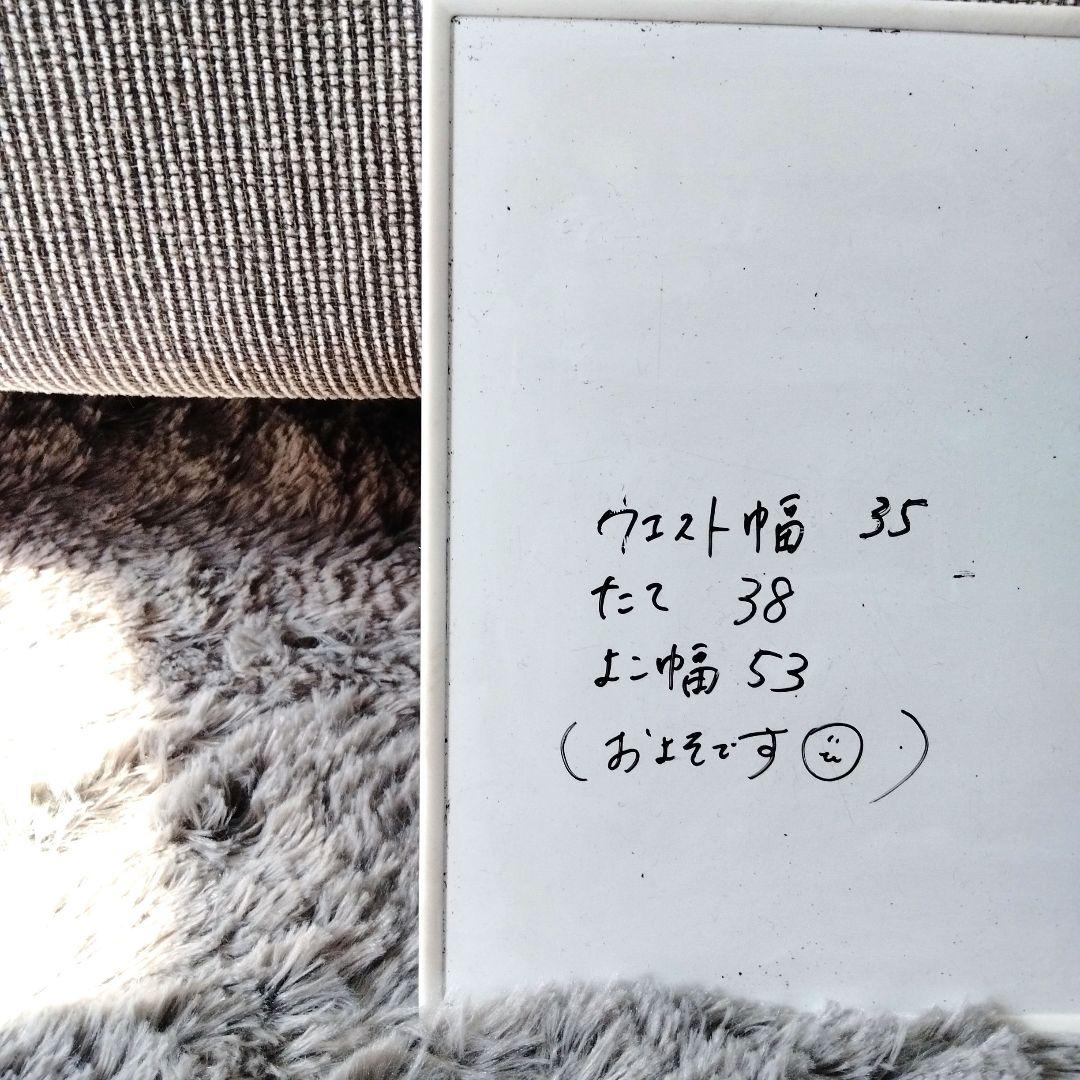 ウエスト幅 35
たて 38
よこ幅 53
(およそです )